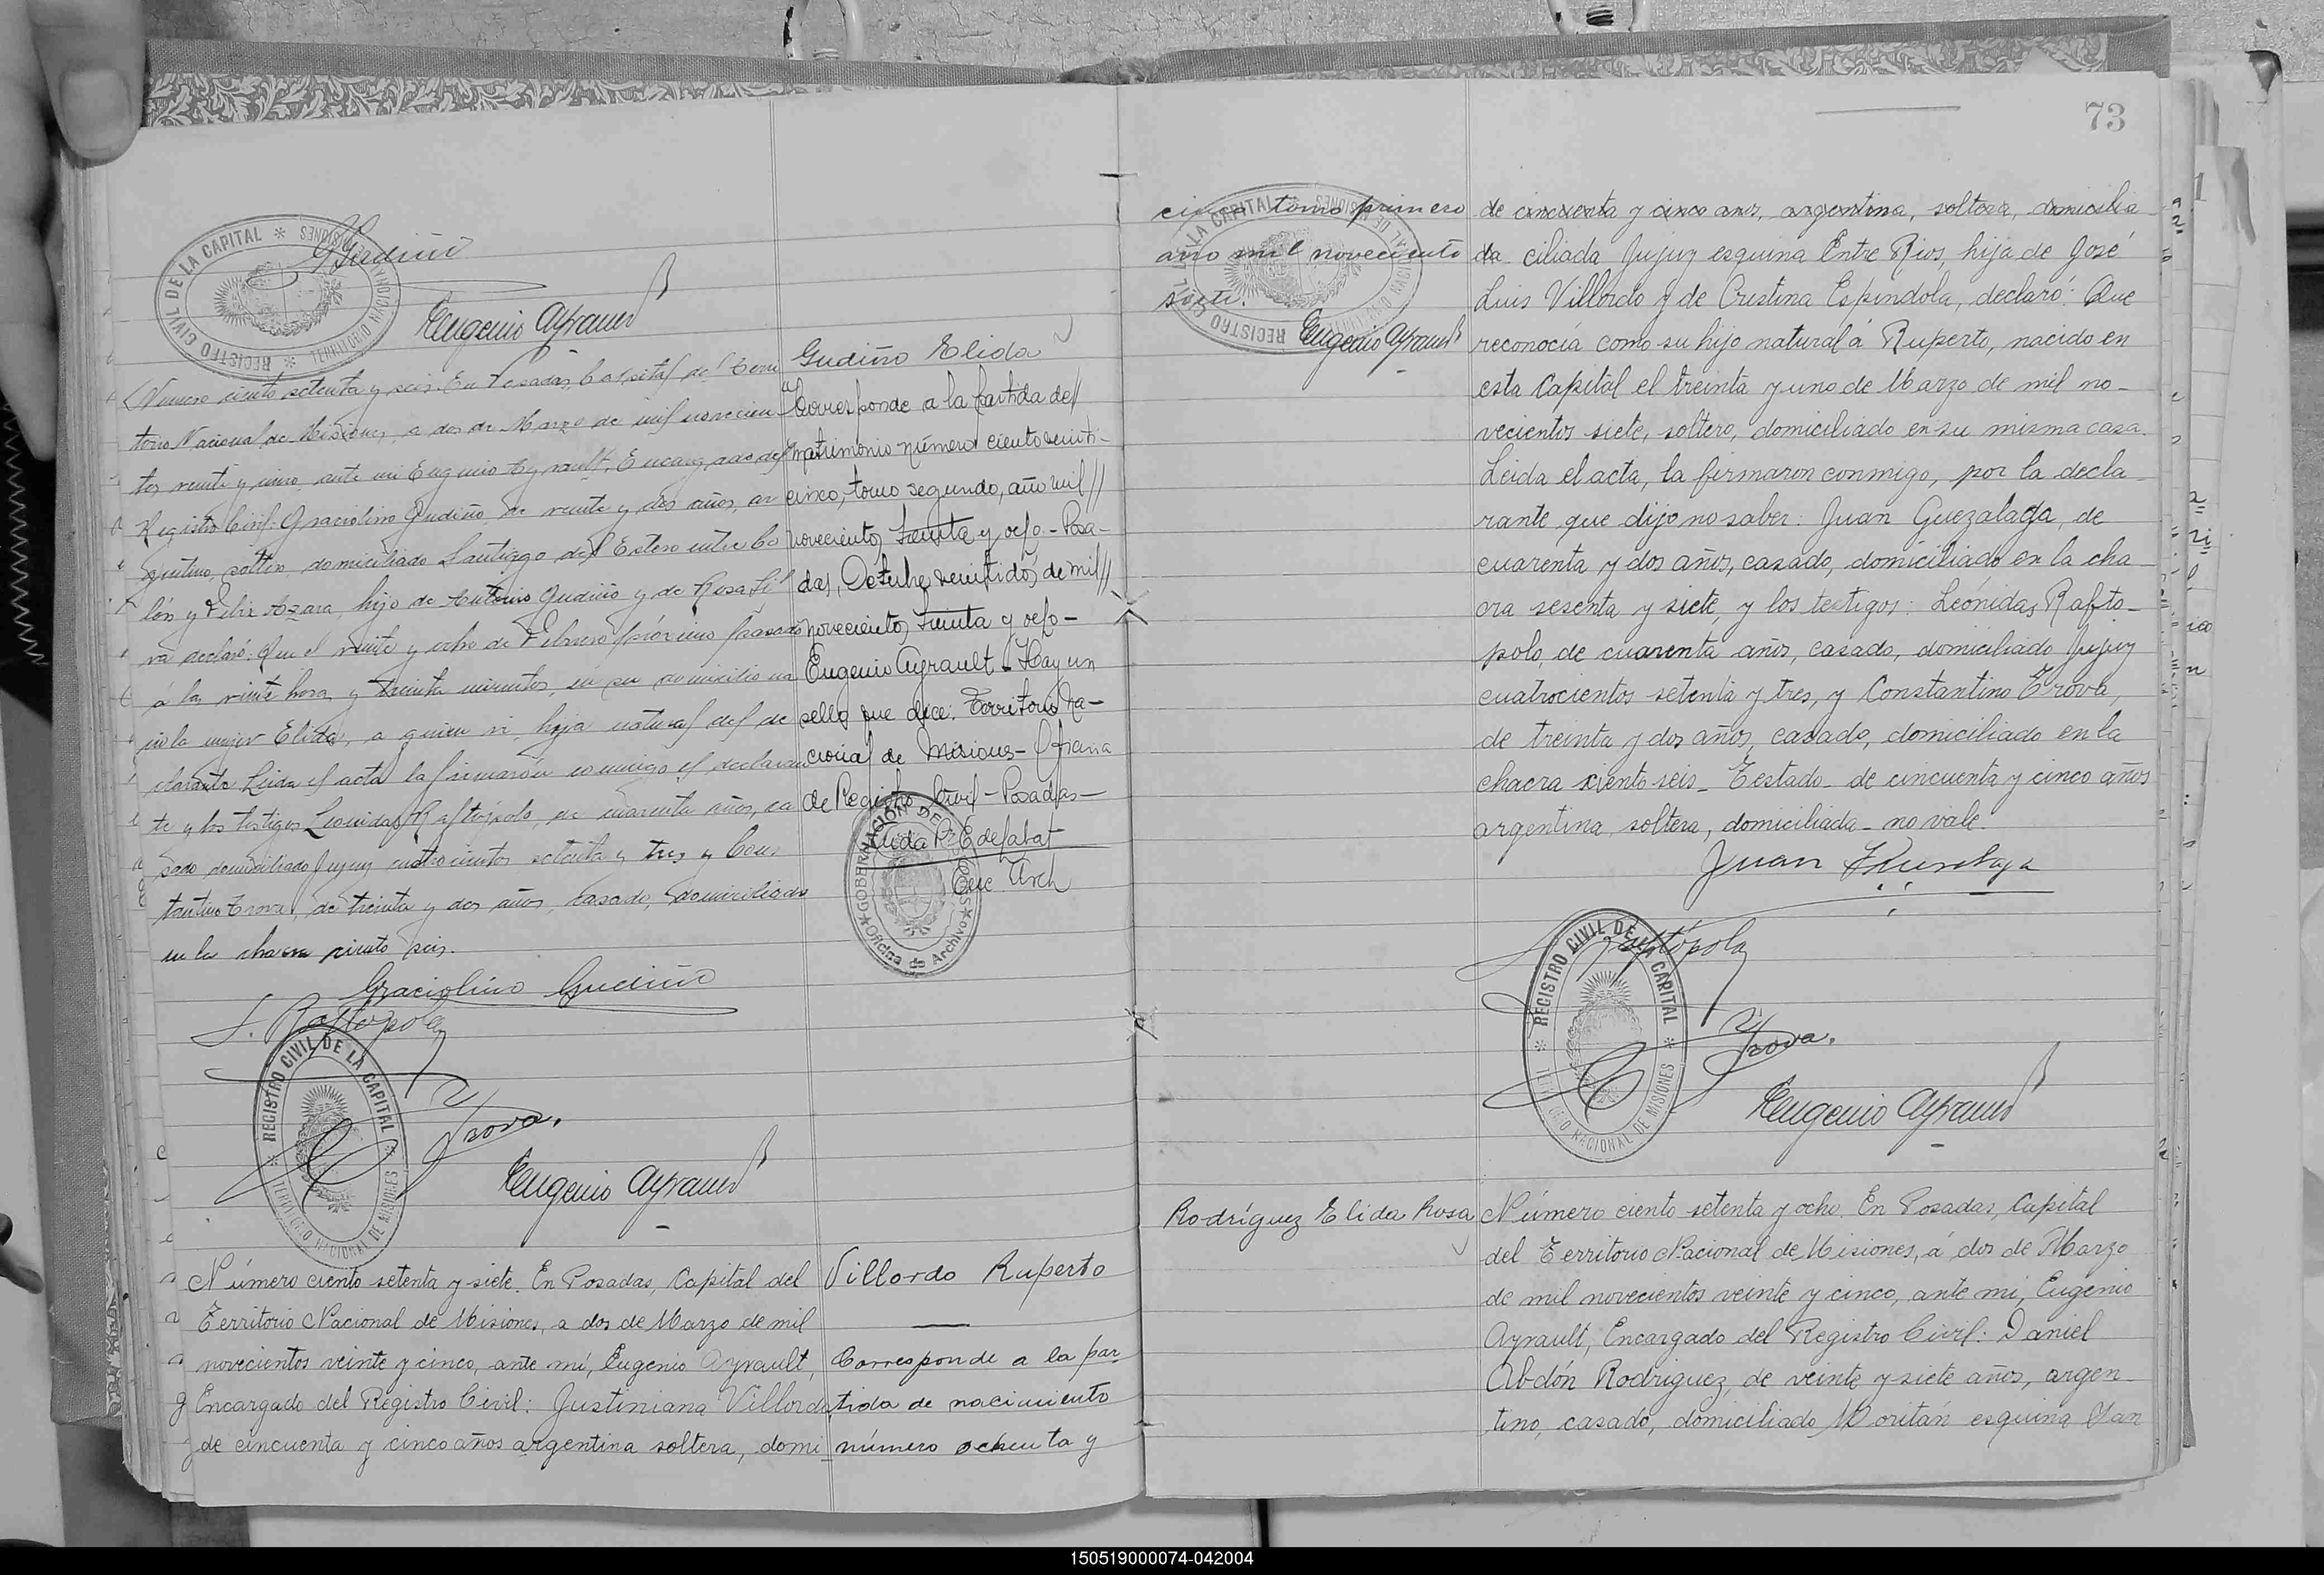 Gudiño
REGISTRO CIVIL DE LA CAPITAL * TERRITORIO NACIONAL DE MISIONES *
Eugenio Ayrault
Número ciento setenta y seis. En Posadas, Capital del Terri
torio Nacional de Misiones, a dos de Marzo de mil novecien
tos veinte y cinco, ante mi Eugenio Ayrault, Encargado del
Registro Civil: Graciolino Gudiño, de veinte y dos años, ar
gentino, soltero, domiciliado Santiago del Estero entre Co
lón y Felix Azara, hijo de Antonio Gudiño y de Rosa Sil
va declaró: Que el veinte y ocho de Febrero próximo pasado
á las veinte horas y treinta minutos, en su domicilio na
ció la mujer Elida, a quien vi, hija natural del de
clarante. Leida el acta la firmarón conmigo el declaran
te y los testigos Leonidas Raftópolo, de cuarenta años, ca
sado domiciliado Jujuy cuatrocientos setenta y tres y Cons
tantino Trova, de treinta y dos años, casado, domiciliado
en la chacra ciento seis.
Graciolino Gudiño
L. Raftopolo
REGISTRO CIVIL DE LA CAPITAL * TERRITORIO NACIONAL DE MISIONES *
C Trova.
Eugenio Ayrault
Gudiño Elida
Corresponde a la partida del
matrimonio número ciento veinti-
cinco, tomo segundo, año mil
novecientos treinta y ocho - Posa-
das, Octubre veintidós de mil
novecientos treinta y ocho -
Eugenio Ayrault - Hay un
sello que dice: Territorio Na-
cional de Misiones - Oficina
de Registro Civil - Posadas -
Enc. Arch
GOBERNACIÓN DE MISIONES
Oficina de Archivo
Número ciento setenta y siete. En Posadas, Capital del
Territorio Nacional de Misiones, a dos de Marzo de mil
novecientos veinte y cinco, ante mí, Eugenio Ayrault,
Encargado del Registro Civil: Justiniana Villordo
de cincuenta y cinco años argentina soltera, domi
Villordo Ruperto
Corresponde a la par
tida de nacimiento
número ochenta y
73
cinco tomo primero
año mil novecientos
siete.
REGISTRO CIVIL DE LA CAPITAL * TERRITORIO NACIONAL DE MISIONES *
Eugenio Ayrault
de cincuenta y cinco años, argentina, soltera, domicilia
da ciliada Jujuy esquina Entre Rios, hija de José
Luis Villordo y de Cristina Espíndola, declaró: Que
reconocía como su hijo natural á Ruperto, nacido en
esta Capital el treinta y uno de Marzo de mil no-
vecientos siete, soltero, domiciliado en su misma casa.
Leida el acta, la firmaron conmigo, por la decla
rante que dijo no saber: Juan Guezalaga, de
cuarenta y dos años, casado, domiciliado en la cha
cra sesenta y siete, y los testigos: Leónidas Rafto-
polo, de cuarenta años, casado, domiciliado Jujuy
cuatrocientos setenta y tres, y Constantino Trova,
de treinta y dos años, casado, domiciliado en la
chacra ciento seis_ Testado_ de cincuenta y cinco años
argentina, soltera, domiciliada_ no vale.
Juan
L. Raftópolo
REGISTRO CIVIL DE LA CAPITAL * TERRITORIO NACIONAL DE MISIONES *
C Trova.
Eugenio Ayrault
Rodríguez Elida Rosa
Número ciento setenta y ocho. En Posadas, Capital
del Territorio Nacional de Misiones, á dos de Marzo
de mil novecientos veinte y cinco, ante mí, Eugenio
Ayrault, Encargado del Registro Civil: Daniel
Abdón Rodriguez, de veinte y siete años, argen-
tino, casado, domiciliado Moritán esquina San
150519000074-042004